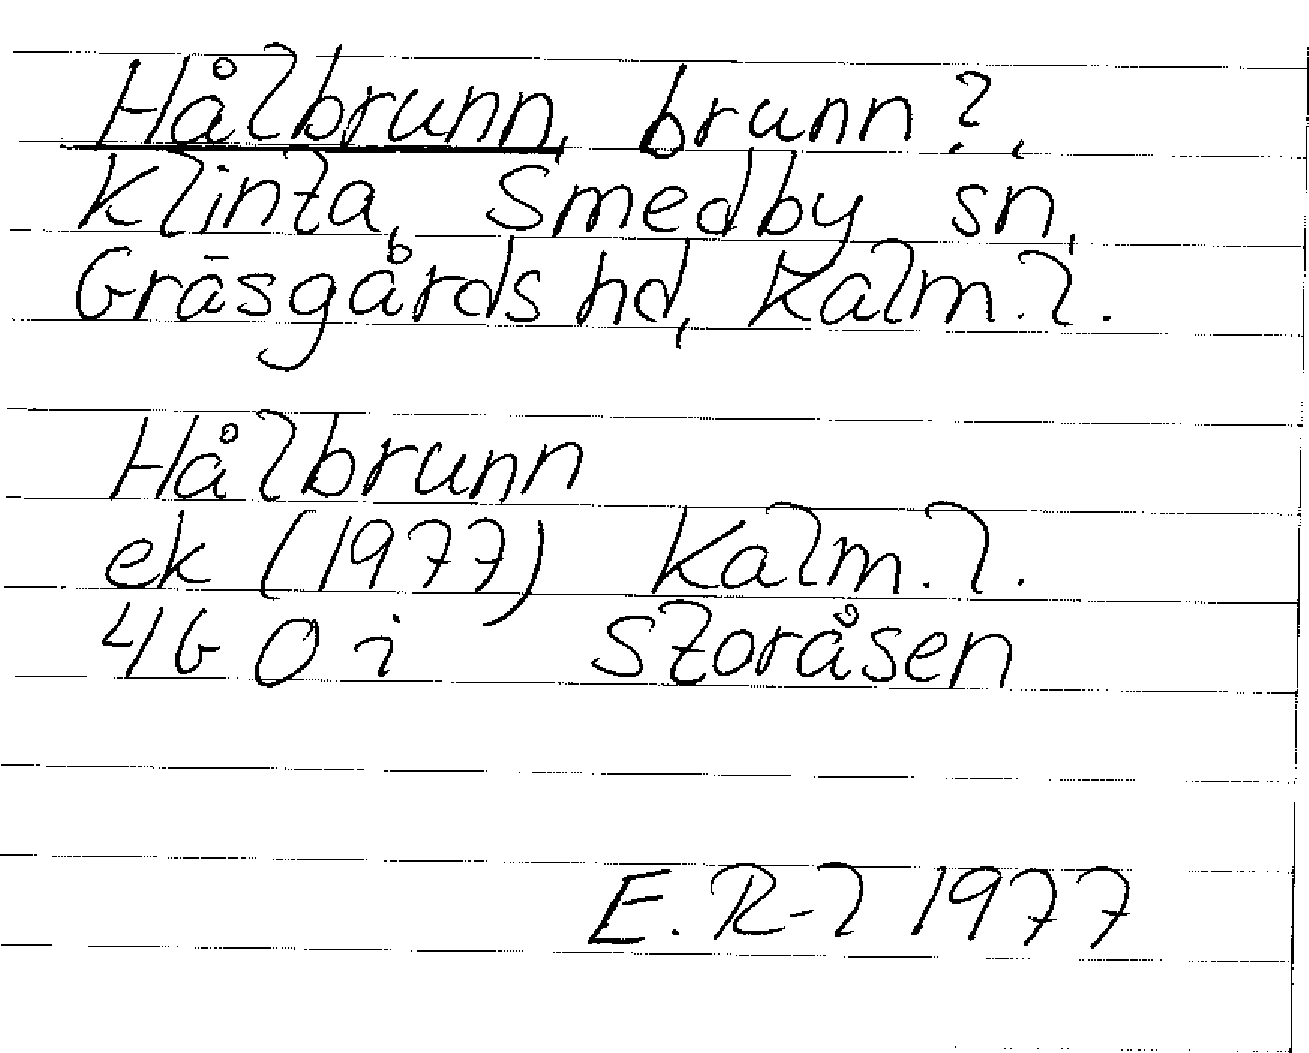 Hålbrunn, brunn?,
Klinta, Smedby sn,
Gräsgårds hd, Kalm. l.
Hålbrunn
ek (1977) Kalm. l.
4G 0 i Storåsen
E. R-l 1977